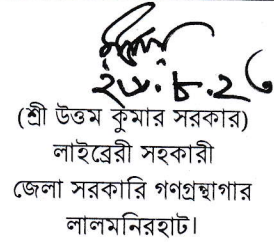 ২৮.৮.২৩
(শ্রী উত্তম কুমার সরকার)
লাইব্রেরী সহকারী
জেলা সরকারি গণগ্রন্থাগার
লালমনিরহাট।